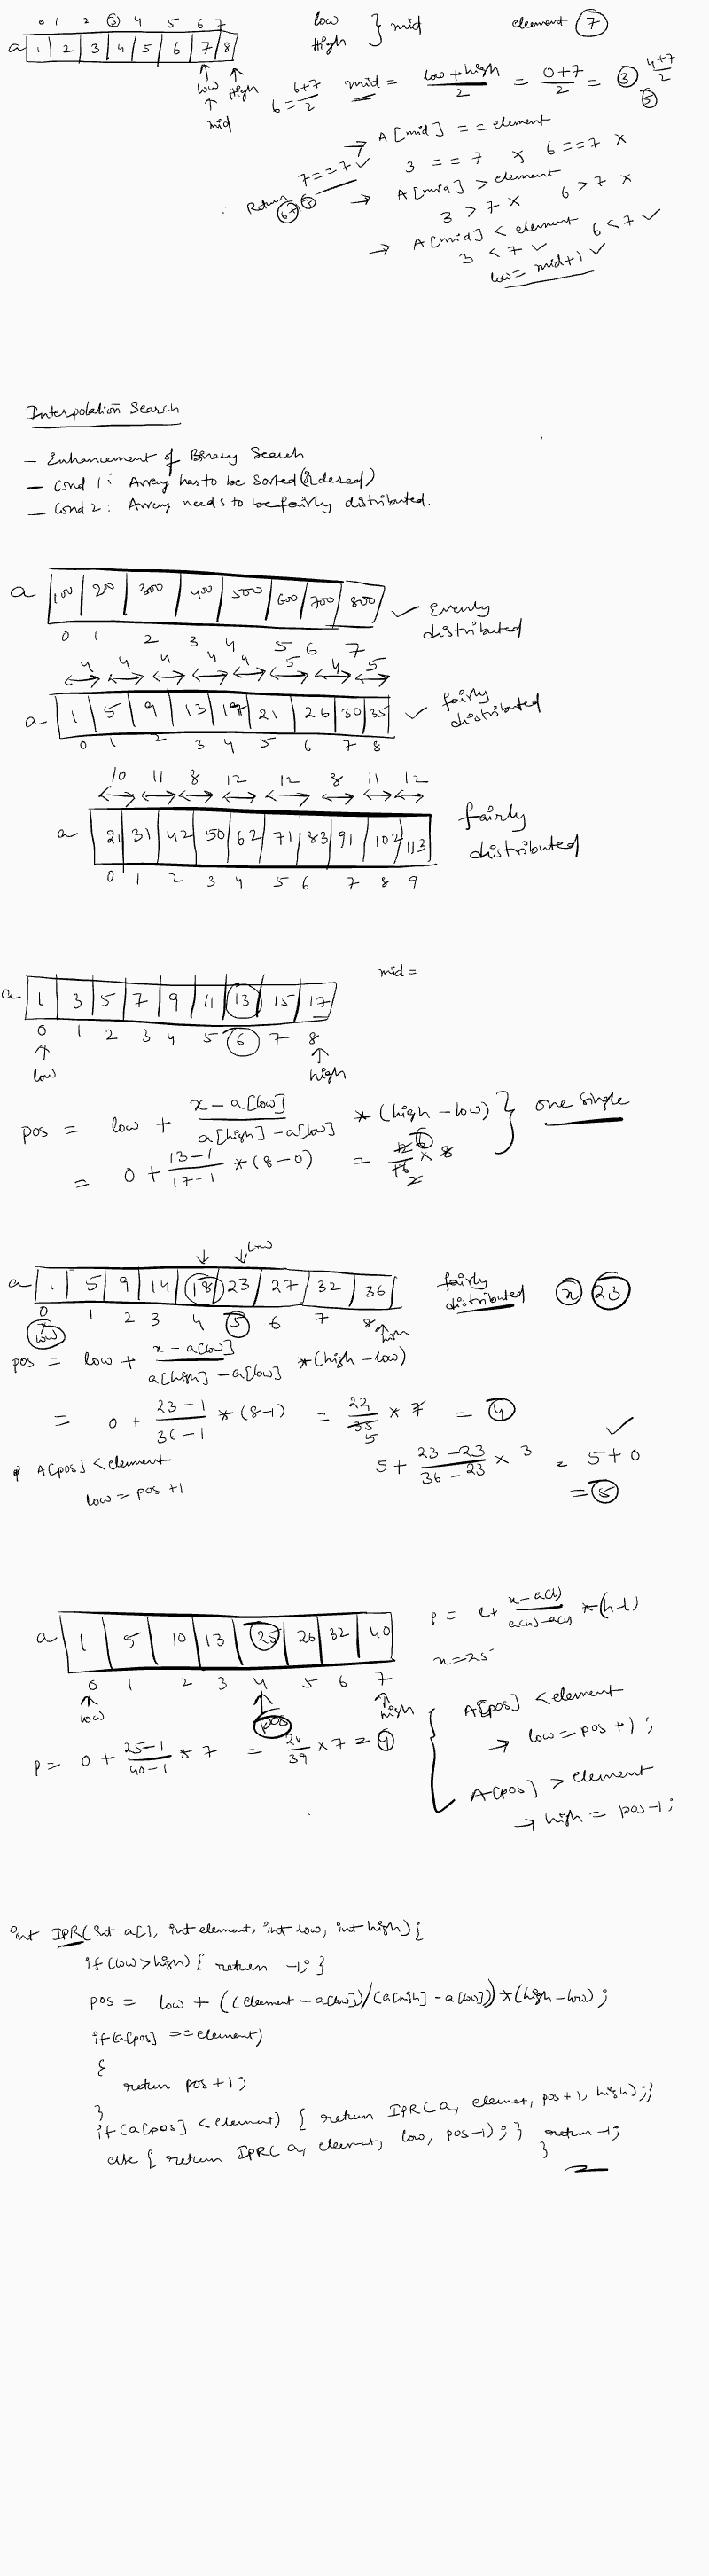 0 1 2 3 4 5 6 7
a 1 2 3 4 5 6 7 8
low High mid
low
High } mid
element 7
6 = 6+7/2
mid = low + high / 2 = 0+7/2 = 3
4+7/2
5
→ A[mid] == element
7 == 7 ✓ 3 == 7 x 6 == 7 x
∴ Return 6+1 7
→ A[mid] > element
3 > 7 x 6 > 7 x
→ A[mid] < element
3 < 7 ✓ 6 < 7 ✓
low = mid+1 ✓
Interpolation Search
- Enhancement of Binary Search
- Cond 1: Array has to be sorted (Ordered)
- Cond 2: Array needs to be fairly distributed.
a 100 200 300 400 500 600 700 800 ✓ Evenly distributed
0 1 2 3 4 5 6 7
4 4 4 4 4 5 4 5
a 1 5 9 13 17 21 26 30 35 ✓ fairly distributed
0 1 2 3 4 5 6 7 8
10 11 8 12 12 8 11 12
a 21 31 42 50 62 71 83 91 102 113 fairly distributed
0 1 2 3 4 5 6 7 8 9
mid =
a 1 3 5 7 9 11 13 15 17
0 1 2 3 4 5 6 7 8
low high
pos = low + x - a[low] / a[high] - a[low] * (high - low) } one single
= 0 + 13-1 / 17-1 * (8-0) = 12/16 x 8
6
2
low
a 1 5 9 14 18 23 27 32 36 fairly distributed x 23
0 1 2 3 4 5 6 7 8
low
pos = low + x - a[low] / a[high] - a[low] * (high - low)
= 0 + 23-1 / 36-1 * (8-1) = 22/35 * 7 = 4
5
A[pos] < element
low = pos + 1
5 + 23-23 / 36-23 x 3 = 5+0 ✓
= 5
a 1 5 10 13 25 26 32 40
0 1 2 3 4 5 6 7
low pos high
p = l + x - a(l) / a(h) - a(l) * (h-l)
x = 25
p = 0 + 25-1 / 40-1 * 7 = 24/39 x 7 = 4
A[pos] < element
→ low = pos + 1;
A[pos] > element
→ high = pos - 1;
int IPR(int a[], int element, int low, int high) {
if (low > high) { return -1; }
pos = low + ((element - a[low]) / (a[high] - a[low])) * (high - low);
if (a[pos] == element)
{
return pos + 1;
}
if (a[pos] < element) { return IPR(a, element, pos+1, high); }
else { return IPR(a, element, low, pos-1); } return -1;
}